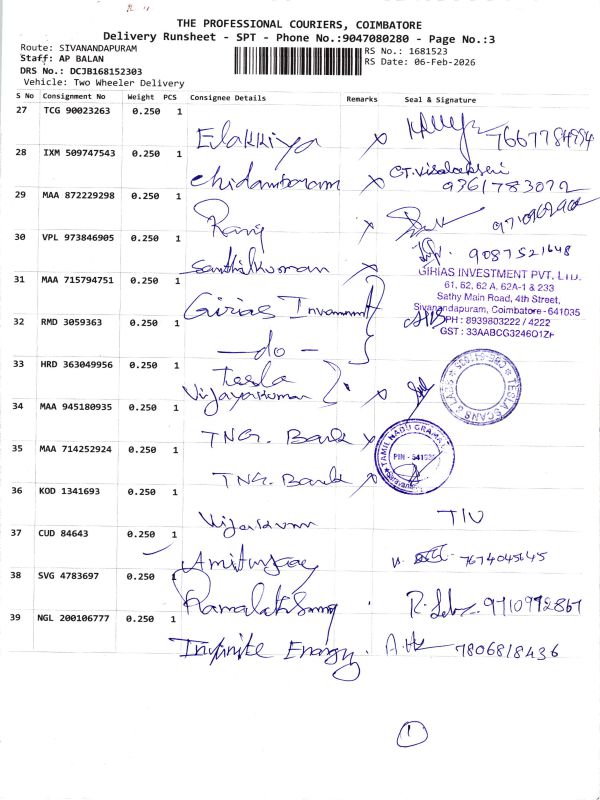 THE PROFESSIONAL COURIERS, COIMBATORE
Delivery Runsheet - SPT - Phone No.:9047080280 - Page No.:3
Route: SIVANANDAPURAM
Staff: AP BALAN
DRS No.: DCJB168152303
Vehicle: Two Wheeler Delivery
RS No.: 1681523
RS Date: 06-Feb-2026
S No Consignment No Weight PCS Consignee Details Remarks Seal & Signature
27 TCG 90023263 0.250 1
Elakkiya x
28 IXM 509747543 0.250 1
Chidambaram x CT.Visalakseri
9361783072
29 MAA 872229298 0.250 1
x
30 VPL 973846905 0.250 1
Santhilkumar x 9087521648
31 MAA 715794751 0.250 1
Girias
GIRIAS INVESTMENT PVT. LTD.
61, 62, 62 A, 62A-1 & 233
Sathy Main Road, 4th Street,
Sivanandapuram, Coimbatore - 641035
PH : 8939803222 / 4222
GST : 33AABCG3246Q1ZH
32 RMD 3059363 0.250 1
- do -
33 HRD 363049956 0.250 1
Tesla
Vijayakumar
TESLA SCANS & LABS
34 MAA 945180935 0.250 1
TNG. Bank x
TAMIL NADU GRAMA
35 MAA 714252924 0.250 1
TNG. Bank x
36 KOD 1341693 0.250 1
37 CUD 84643 0.250 1
7674045645
38 SVG 4783697 0.250 1
9710992867
39 NGL 200106777 0.250 1
Infinite Energy. 7806818436
1